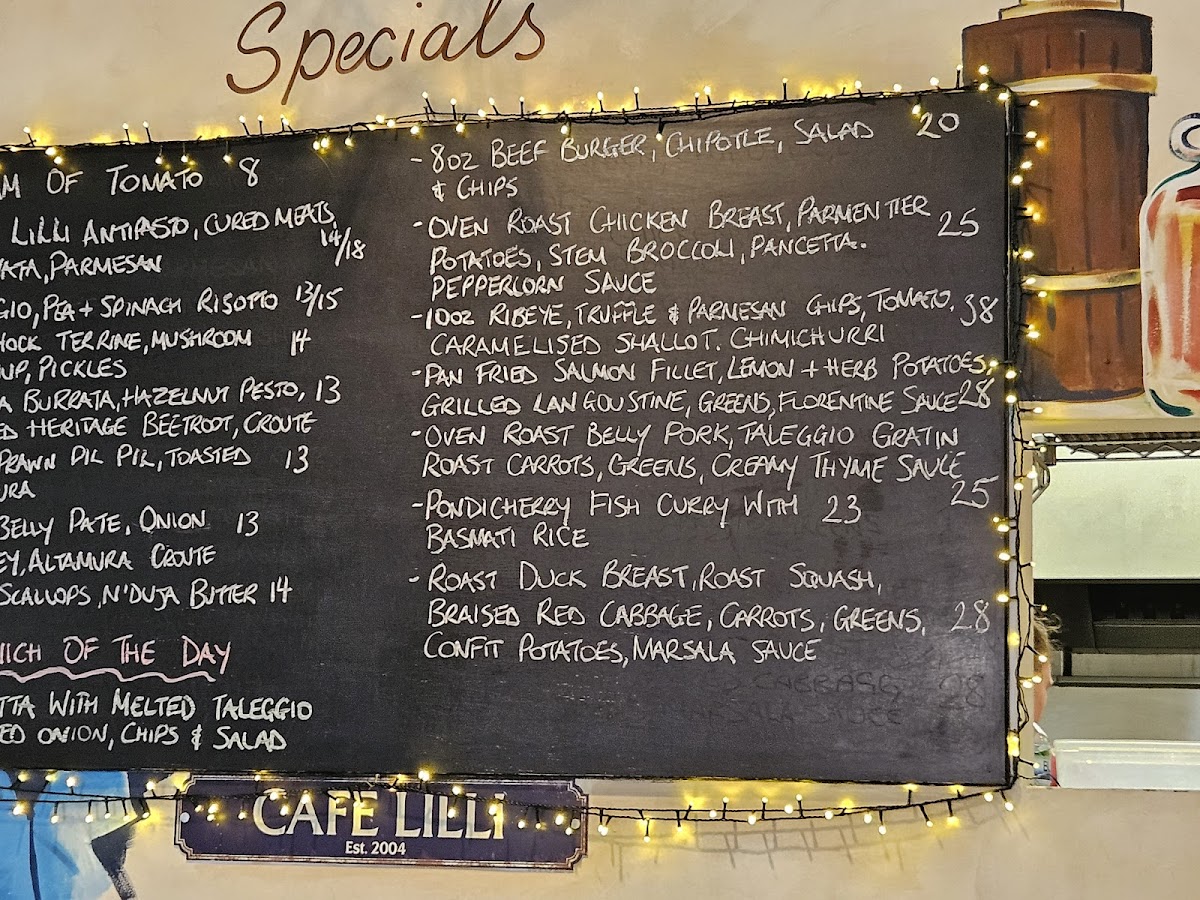 Specials
OF TOMATO 8
LILLI ANTIPASTO, CURED MEATS,
14/18
PARMESAN
PEA + SPINACH RISOTTO 12/15
HOCK TERRINE, MUSHROOM 14
PICKLES
BURRATA, HAZELNUT PESTO, 13
HERITAGE BEETROOT, CROUTE
PRAWN PIL PIL, TOASTED 13
BELLY PATE, ONION 13
ALTAMURA CROUTE
SCALLOPS, N'DUJA BUTTER 14
OF THE DAY
WITH MELTED TALEGGIO
ONION, CHIPS & SALAD
- 8OZ BEEF BURGER, CHIPOTLE, SALAD 20
& CHIPS
- OVEN ROAST CHICKEN BREAST, PARMENTIER
POTATOES, STEM BROCCOLI, PANCETTA. 25
PEPPERCORN SAUCE
- 10OZ RIBEYE, TRUFFLE & PARMESAN CHIPS, TOMATO, 38
CARAMELISED SHALLOT. CHIMICHURRI
- PAN FRIED SALMON FILLET, LEMON + HERB POTATOES,
GRILLED LANGOUSTINE, GREENS, FLORENTINE SAUCE 28
- OVEN ROAST BELLY PORK, TALEGGIO GRATIN
ROAST CARROTS, GREENS, CREAMY THYME SAUCE
25
- PONDICHERRY FISH CURRY WITH 23
BASMATI RICE
- ROAST DUCK BREAST, ROAST SQUASH,
BRAISED RED CABBAGE, CARROTS, GREENS, 28
CONFIT POTATOES, MARSALA SAUCE
CAFE LILLI
Est. 2004